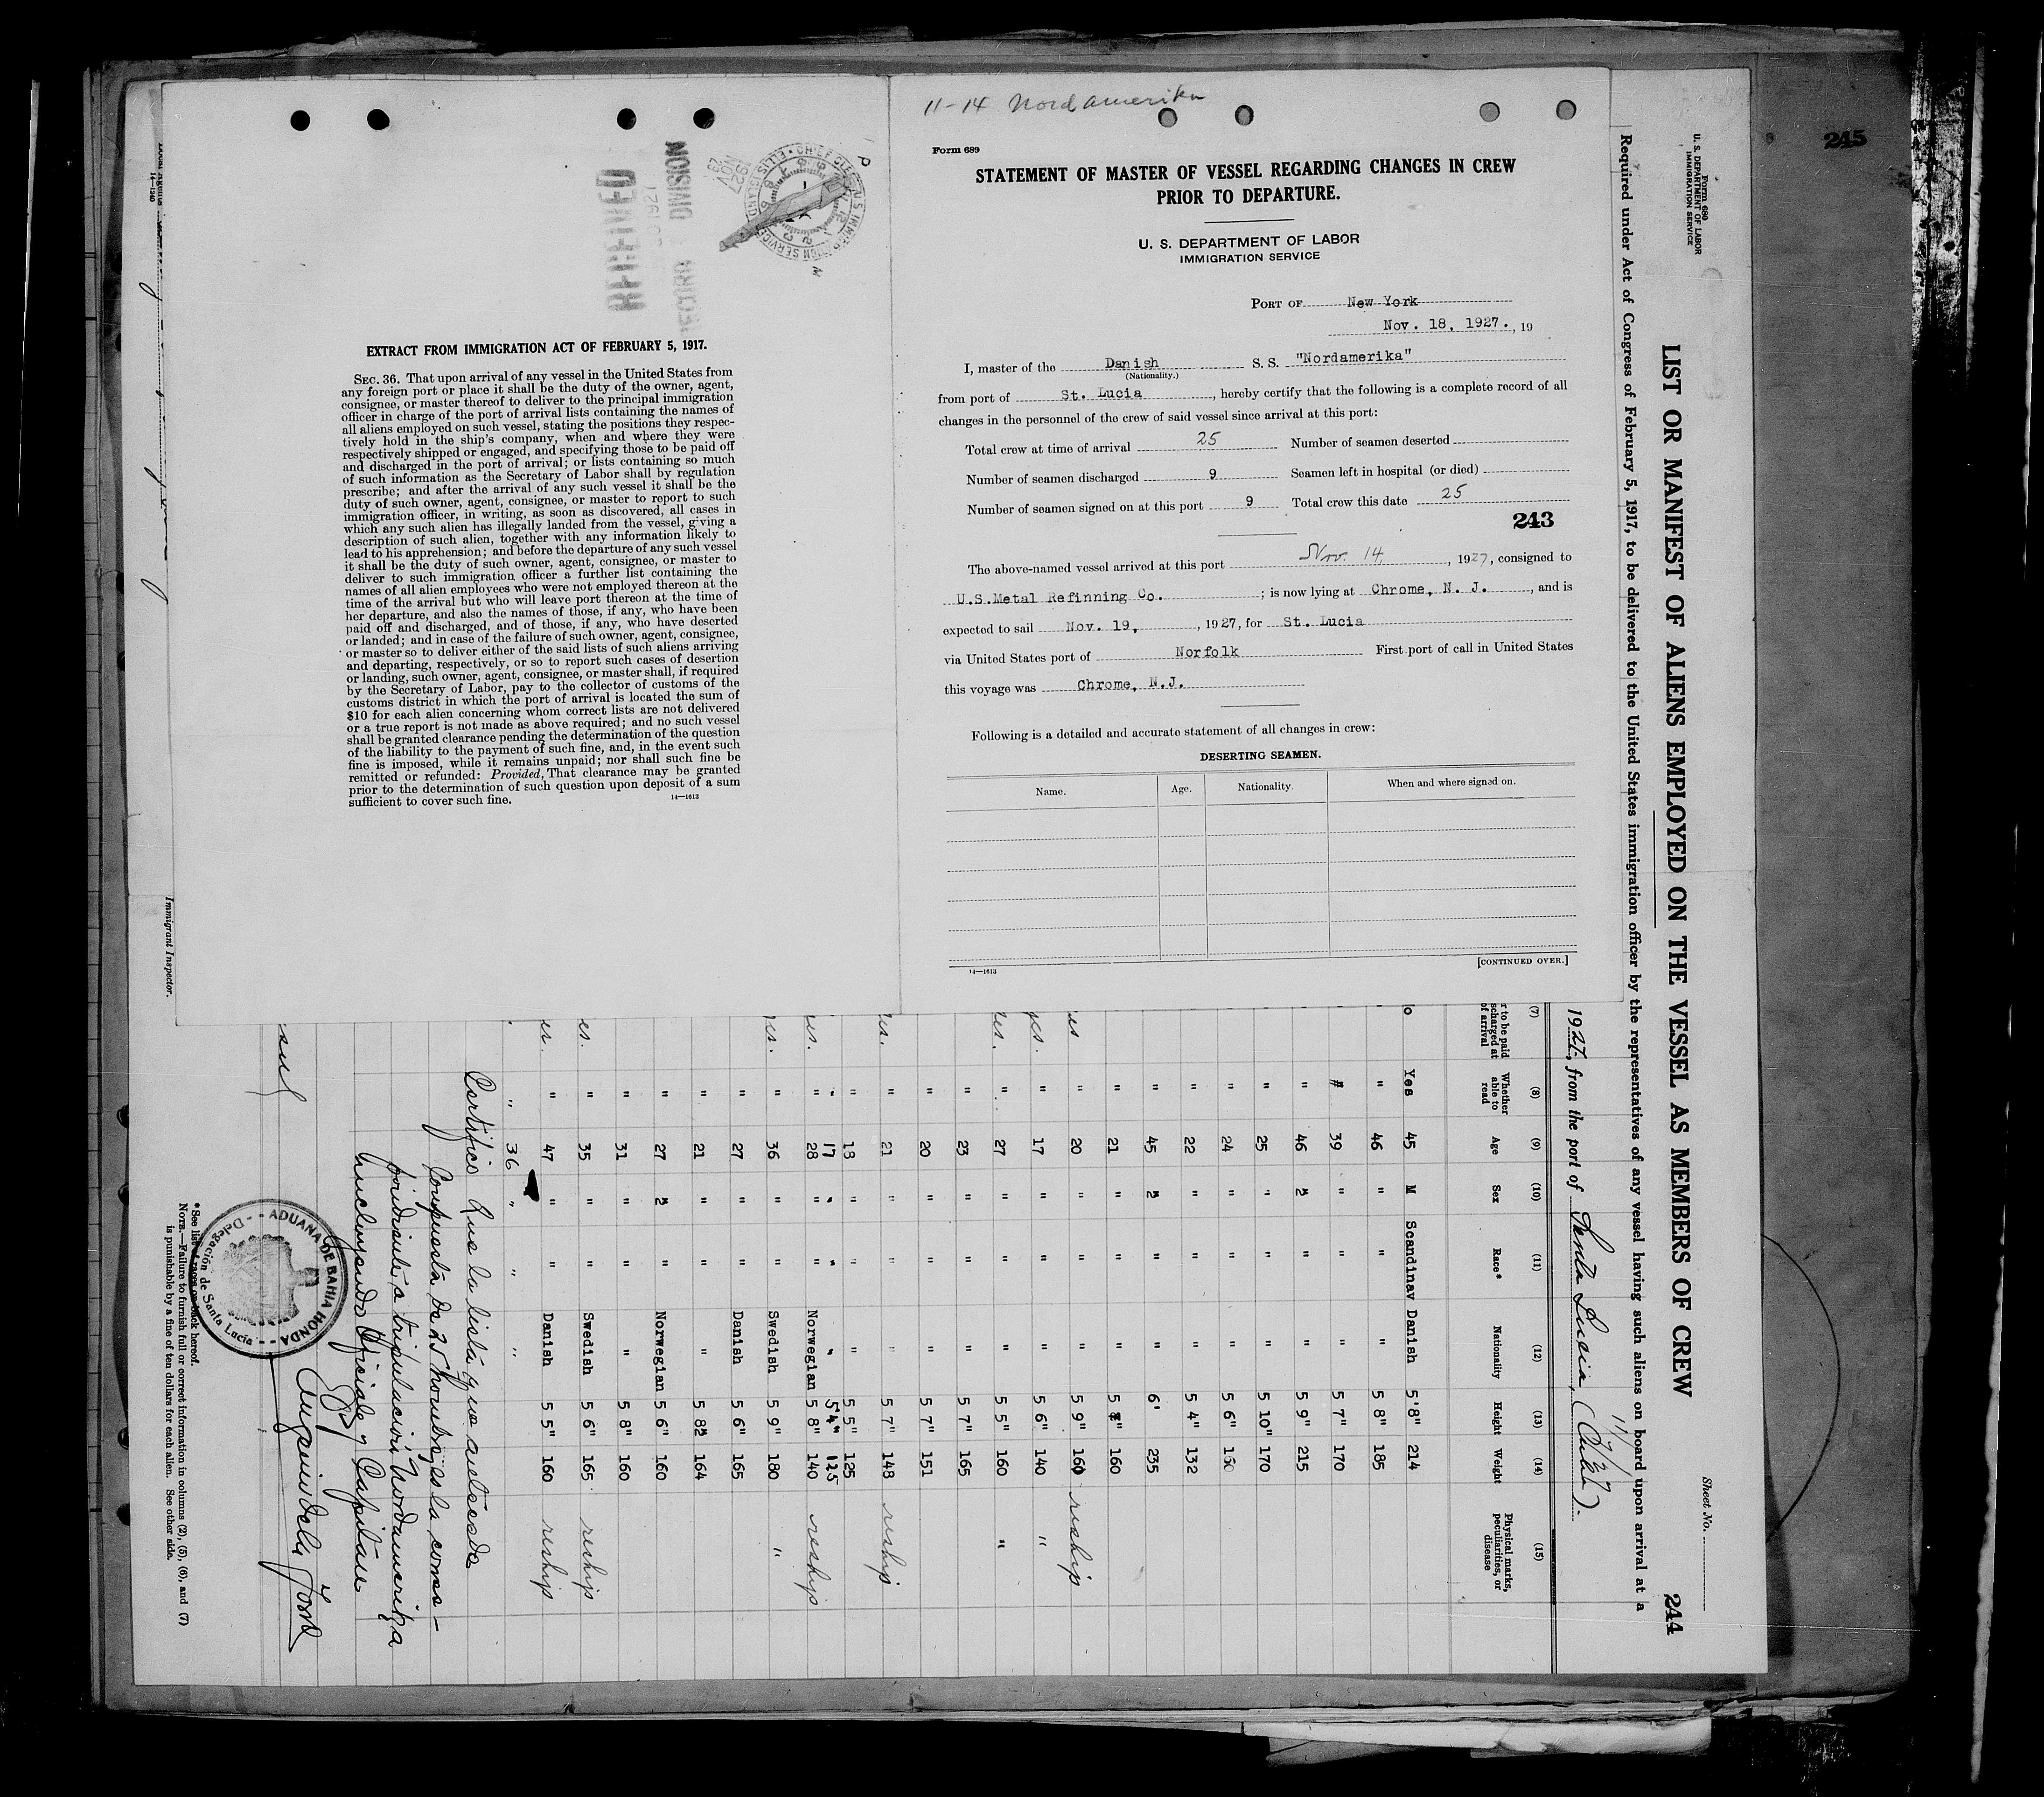 245
11-14 Nordamerika
Form 689
STATEMENT OF MASTER OF VESSEL REGARDING CHANGES IN CREW
PRIOR TO DEPARTURE.
U. S. DEPARTMENT OF LABOR
IMMIGRATION SERVICE
PORT OF New York
Nov. 18, 1927. , 19
I, master of the Danish S. S. "Nordamerika"
(Nationality.)
from port of St. Lucia , hereby certify that the following is a complete record of all
changes in the personnel of the crew of said vessel since arrival at this port:
Total crew at time of arrival 25 Number of seamen deserted
Number of seamen discharged 9 Seamen left in hospital (or died)
Number of seamen signed on at this port 9 Total crew this date 25
243
The above-named vessel arrived at this port Nov. 14, , 1927, consigned to
U.S.Metal Refinning Co. ; is now lying at Chrome, N. J. , and is
expected to sail Nov. 19, , 1927, for St. Lucia
via United States port of Norfolk First port of call in United States
this voyage was Chrome, N.J.
Following is a detailed and accurate statement of all changes in crew:
DESERTING SEAMEN.
Name. Age. Nationality. When and where signed on.
14—1613
[CONTINUED OVER.]
RECORD DIVISION
EXTRACT FROM IMMIGRATION ACT OF FEBRUARY 5, 1917.
SEC. 36. That upon arrival of any vessel in the United States from
any foreign port or place it shall be the duty of the owner, agent,
consignee, or master thereof to deliver to the principal immigration
officer in charge of the port of arrival lists containing the names of
all aliens employed on such vessel, stating the positions they respec-
tively hold in the ship's company, when and where they were
respectively shipped or engaged, and specifying those to be paid off
and discharged in the port of arrival; or lists containing so much
of such information as the Secretary of Labor shall by regulation
prescribe; and after the arrival of any such vessel it shall be the
duty of such owner, agent, consignee, or master to report to such
immigration officer, in writing, as soon as discovered, all cases in
which any such alien has illegally landed from the vessel, giving a
description of such alien, together with any information likely to
lead to his apprehension; and before the departure of any such vessel
it shall be the duty of such owner, agent, consignee, or master to
deliver to such immigration officer a further list containing the
names of all alien employees who were not employed thereon at the
time of the arrival but who will leave port thereon at the time of
her departure, and also the names of those, if any, who have been
paid off and discharged, and of those, if any, who have deserted
or landed; and in case of the failure of such owner, agent, consignee,
or master so to deliver either of the said lists of such aliens arriving
and departing, respectively, or so to report such cases of desertion
or landing, such owner, agent, consignee, or master shall, if required
by the Secretary of Labor, pay to the collector of customs of the
customs district in which the port of arrival is located the sum of
$10 for each alien concerning whom correct lists are not delivered
or a true report is not made as above required; and no such vessel
shall be granted clearance pending the determination of the question
of the liability to the payment of such fine, and, in the event such
fine is imposed, while it remains unpaid; nor shall such fine be
remitted or refunded: Provided, That clearance may be granted
prior to the determination of such question upon deposit of a sum
sufficient to cover such fine.
14—1613
Form 680
U. S. DEPARTMENT OF LABOR
IMMIGRATION SERVICE
Sheet No.
LIST OR MANIFEST OF ALIENS EMPLOYED ON THE VESSEL AS MEMBERS OF CREW
244
Required under Act of Congress of February 5, 1917, to be delivered to the United States immigration officer by the representatives of any vessel having such aliens on board upon arrival at a
1927, from the port of Santa Lucia, (Cuba).
(7) (8) (9) (10) (11) (12) (13) (14) (15)
Whether able to read Age Sex Race* Nationality Height Weight Physical marks, peculiarities, or disease
Yes 45 M Scandinav Danish 5'8" 214
" 46 " " " 5 8" 185
" 39 " " " 5 7" 170
" 46 " " " 5 9" 215
" 25 " " " 5 10" 170
" 24 " " " 5 6" 150
" 22 " " " 5 4" 132
" 45 " " " 6' 235
" 21 " " " 5 160
yes " 20 " " " 5 9" 160 reship
yes. " 17 " " " 5 6" 140 "
yes. " 27 " " " 5 5" 160 "
" 23 " " " 5 7" 165
" 20 " " " 5 7" 151
yes. " 21 " " " 5 7" 148 reship
" 18 " " " 5 5" 125
" 17 " " " 5 4" 125
yes. " 28 " " Norwegian 5 8" 140 reship
yes. " 36 " " Swedish 5 9" 180 "
" 27 " " Danish 5 6" 165
" 21 " " " 5 8" 164
" 27 " " Norwegian 5 6" 160
" 31 " " " 5 8" 160
yes. " 35 " " Swedish 5 6" 165 reship
yes. " 47 " " Danish 5 5" 160 reship
" 36 " " "
Certifico que la lista que antecede
compuesta de 25 hombres es la corres-
pondiente a tripulacion Nordamerika
incluyendo oficiales y Capitan
ADUANA DE BAHIA HONDA
Delegación de Santa Lucia
*See list of races on back hereof.
NOTE.—Failure to furnish full or correct information in columns (2), (5), (6), and (7)
is punishable by a fine of ten dollars for each alien. See other side.
Immigrant Inspector.
14—1240